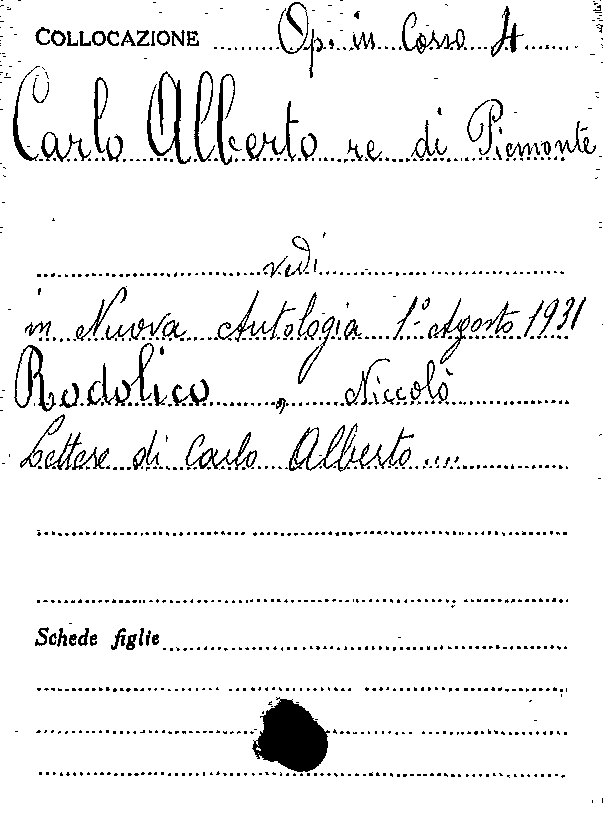 COLLOCAZIONE Op. in Corso 4
Carlo Alberto re di Piemonte
vedi
in Nuova Antologia 1° Agosto 1931
Rodolico, Niccolò
Lettere di Carlo Alberto....
Schede figlie